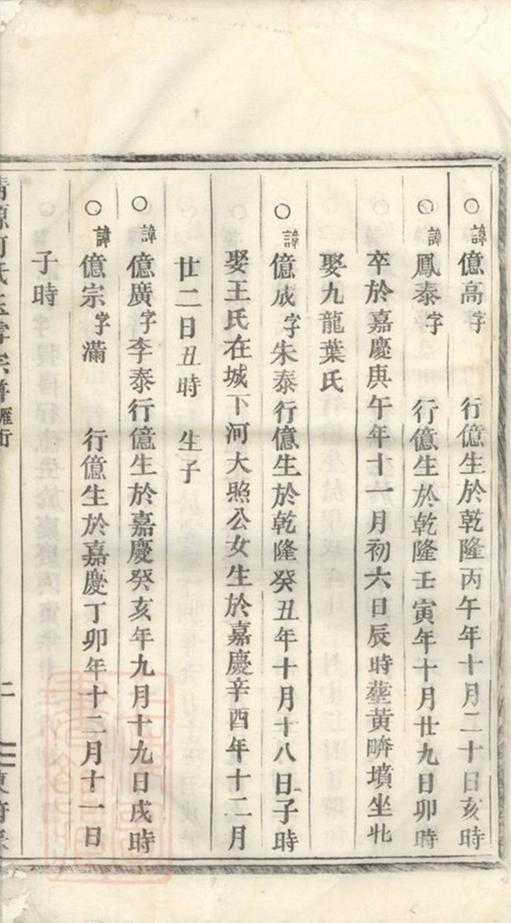 ○諱億高字　行億生於乾隆丙午年十月二十日亥時
○諱鳳泰字　行億生於乾隆壬寅年十月廿九日卯時
卒於嘉慶庚午年十一月初六日辰時塟黄疄墳坐北
娶九龍葉氏
○諱億成字朱泰行億生於乾隆癸丑年十月十八日子時
娶王氏在城下河大照公女生於嘉慶辛酉年十二月
廿二日丑時　生子
○諱億廣字李泰行億生於嘉慶癸亥年九月十九日戌時
○諱億宗字滿　行億生於嘉慶丁卯年十二月十一日
子時